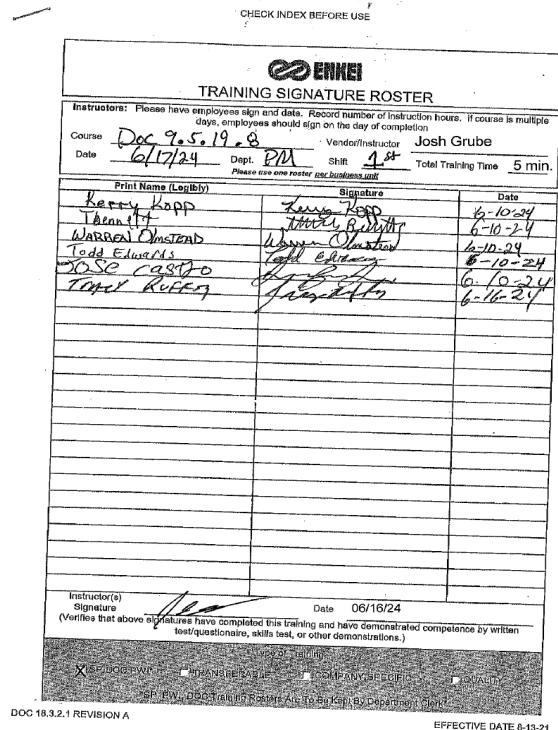 CHECK INDEX BEFORE USE
ENKEI
TRAINING SIGNATURE ROSTER
Instructors: Please have employees sign and date. Record number of instruction hours. If course is multiple
days, employees should sign on the day of completion
Course Doc 9.5.19.8 Vendor/Instructor Josh Grube
Date 6/17/24 Dept. PM Shift 1st Total Training Time 5 min.
Please use one roster per business unit
Print Name (Legibly) Signature Date
Kerry Kopp Kerry Kopp 6-10-24
TBennett 6-10-24
WARREN Olmstead Warren Olmstead 6-10-24
Todd Edwards Todd Edwards 6-10-24
Jose Castro 6-10-24
Tracy 6-16-24
Instructor(s)
Signature Date 06/16/24
(Verifies that above signatures have completed this training and have demonstrated competence by written
test/questionaire, skills test, or other demonstrations.)
Training
X TRANSFERABLE COMPANY SPECIFIC QUALITY
SP, PWI, DOC Training Rosters Are To Be Kept By Department Clerk
DOC 18.3.2.1 REVISION A
EFFECTIVE DATE 8-13-21